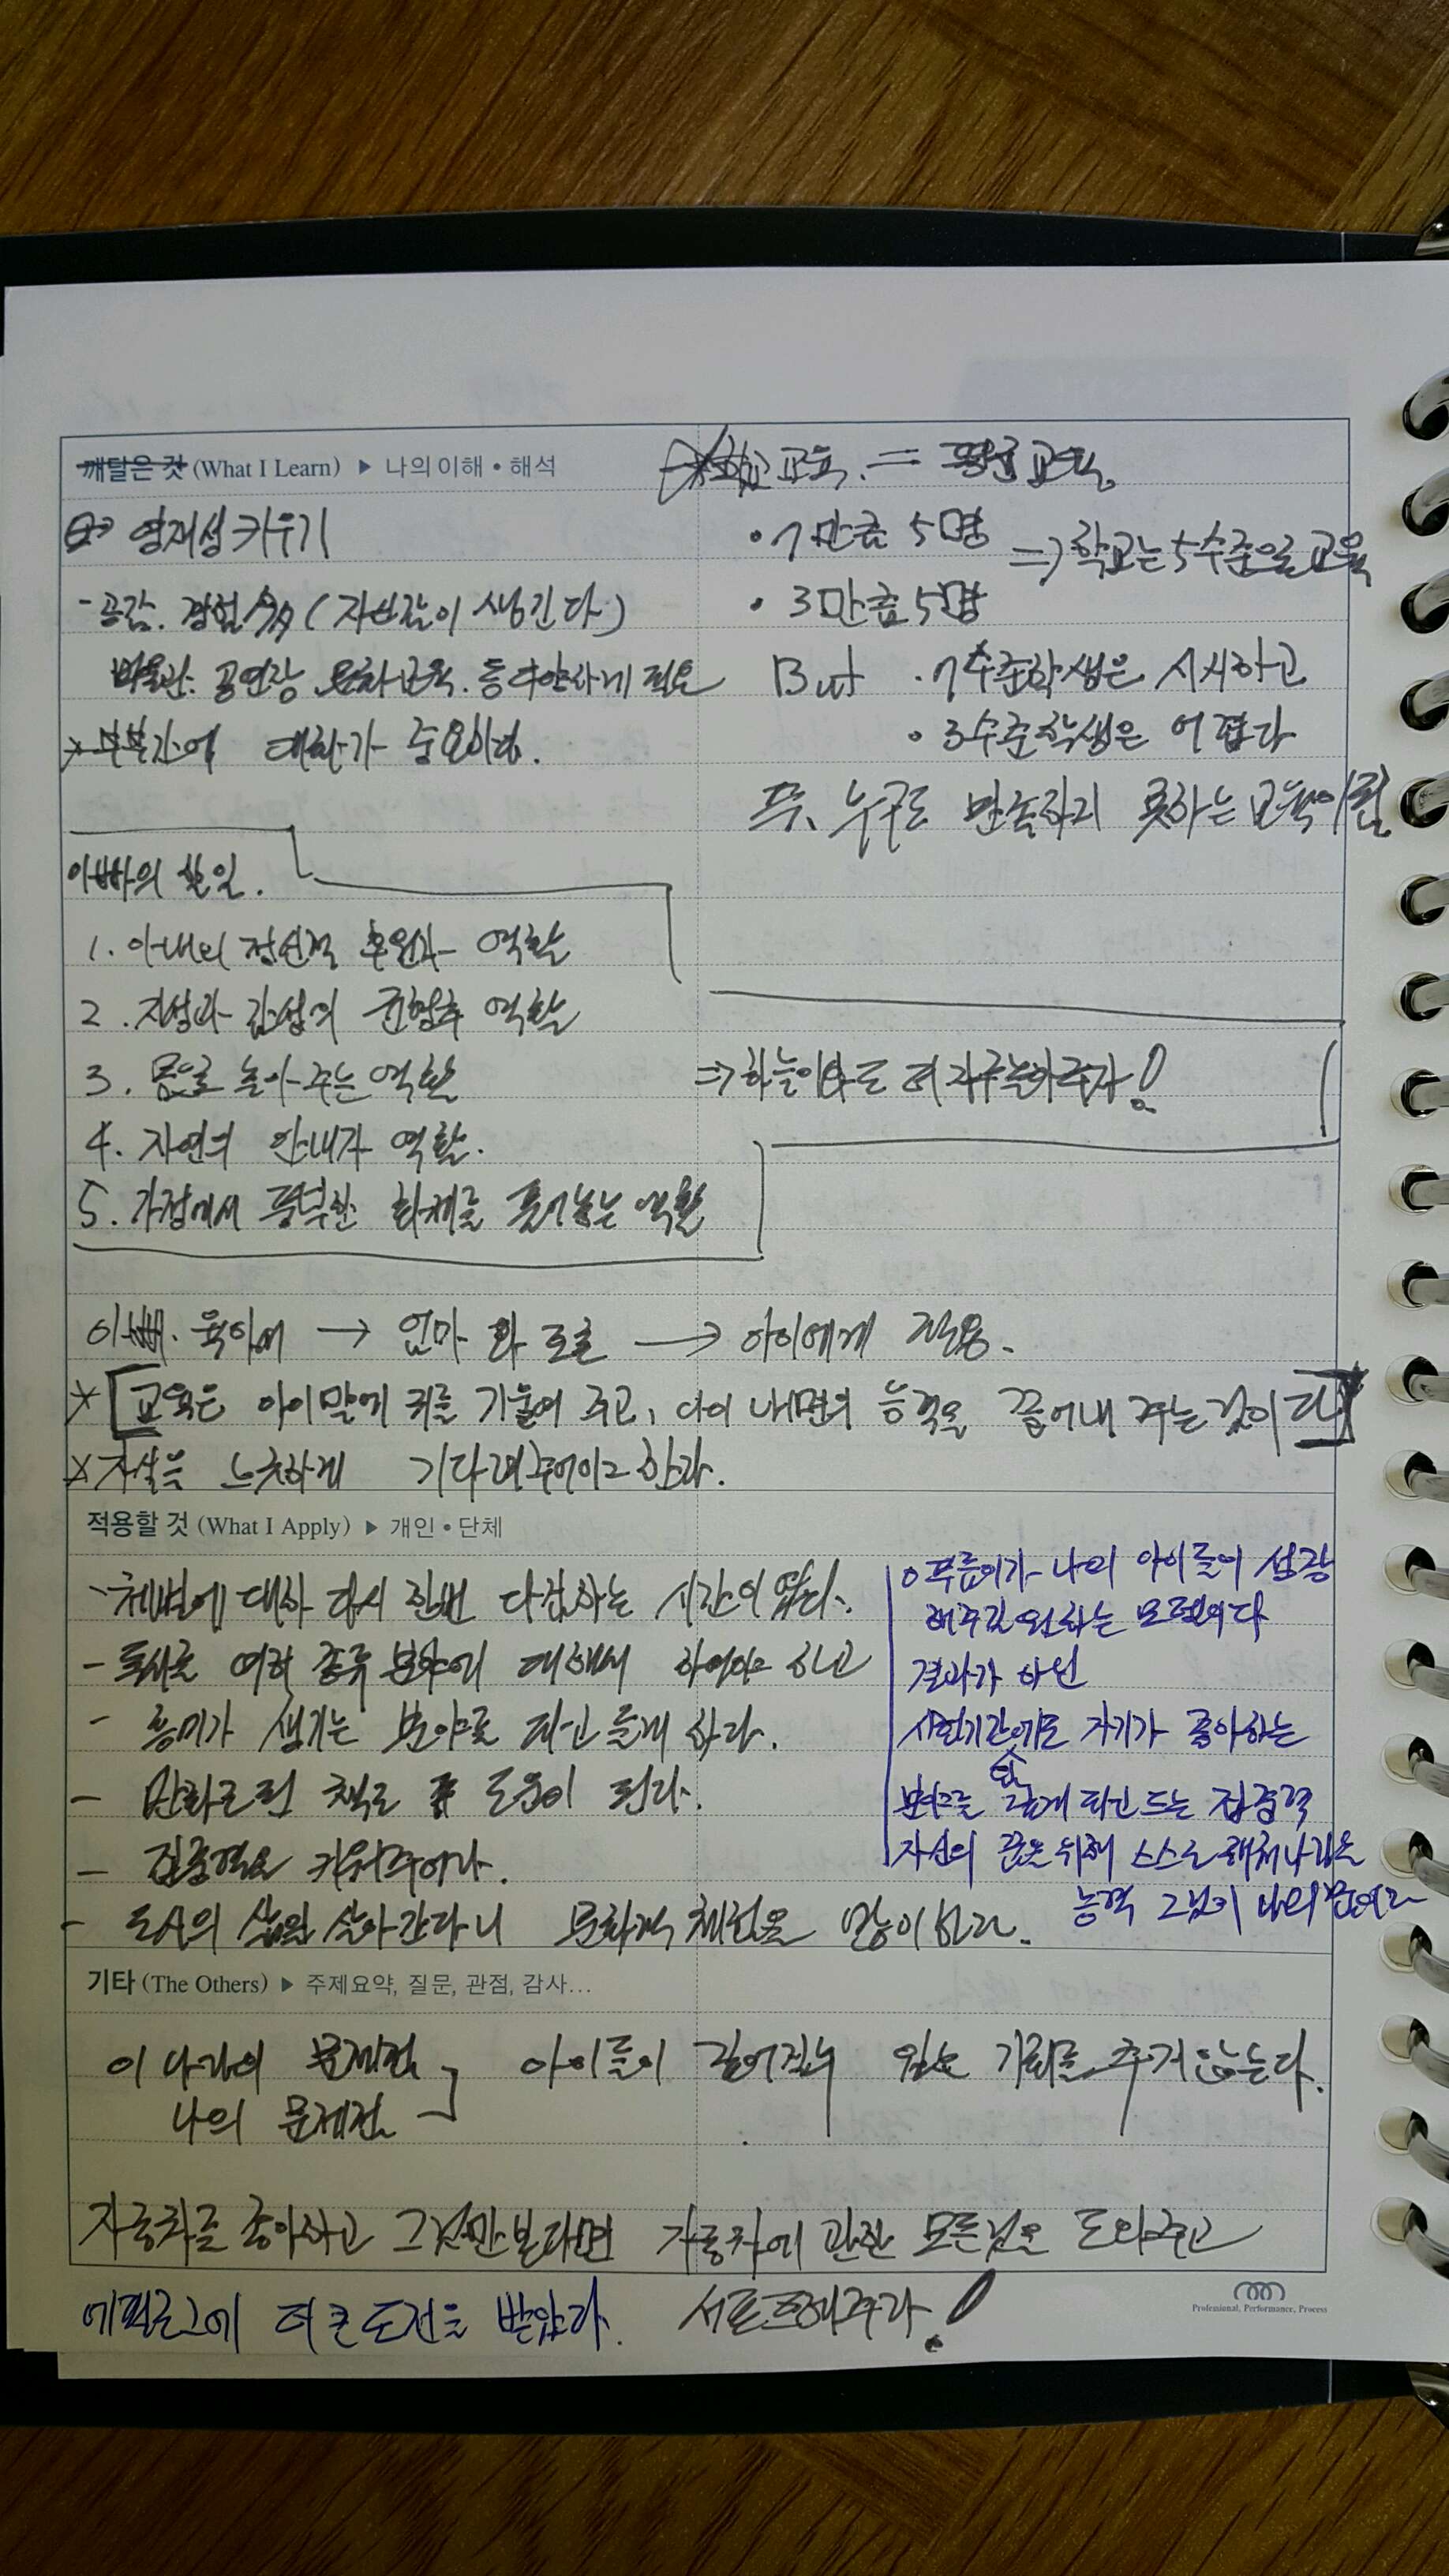 깨달은 것 (What I Learn) ▶ 나의 이해 • 해석
영재성 키우기
- 공감. 경험 多 (자신감이 생긴다)
박물관. 공연장 문화교육. 등 다양하게 필요
* 부부간에 대화가 중요하다.
교육. = 평균교육.
• 7만큼 5명
• 3만큼 5명
⇒ 학교는 5수준으로 교육
But • 7수준학생은 시시하고
• 3수준학생은 어렵다
즉, 누구도 만족하지 못하는 교육이 됨
아빠의 할일.
1. 아내의 정신적 후원자 역할
2. 지성과 감성의 균형추 역할
3. 몸으로 놀아주는 역할
⇒ 하늘이와도 더 자주 놀아주자!
4. 자연의 안내자 역할.
5. 가정에서 풍덕한 화제를 풀어놓는 역할
아빠. 육아에 → 엄마 화 → 아이에게 적용.
* [교육은 아이말에 귀를 기울여 주고, 아이 내면의 능력을 끌어내 주는 것이다]
* 자식을 느긋하게 기다려주어야 한다.
적용할 것 (What I Apply) ▶ 개인 • 단체
- 체벌에 대해 다시 한번 다짐하는 시간이 였다.
- 독서를 여러 종류 분야에 대해서 하여야 하고
- 흥미가 생기는 분야으로 파고 들게 하라.
- 만화로된 책도 도움이 된다.
- 집중력을 키워주어라.
- 도시의 삶을 살아간다니 문화적 체험을 많이 하라.
○ 푸름이가 나의 아이들이 성장
해주길 원하는 모델이다
결과가 아닌
시험기간에도 자기가 좋아하는
분야를 깊게 파고드는 집중력
자신의 꿈을 위해 스스로 헤쳐나감을
능력 그것이
기타 (The Others) ▶ 주제요약, 질문, 관점, 감사...
이 나라의 문제점
나의 문제점
아이들이 깊어질수 있는 기회를 주지 않는다.
자동차를 좋아하고 그것만 본다면 자동차에 관한 모든것을 도와주고
서포트해주라!
에필로그에 더 큰 도전을 받았다.
Professional, Performance, Process